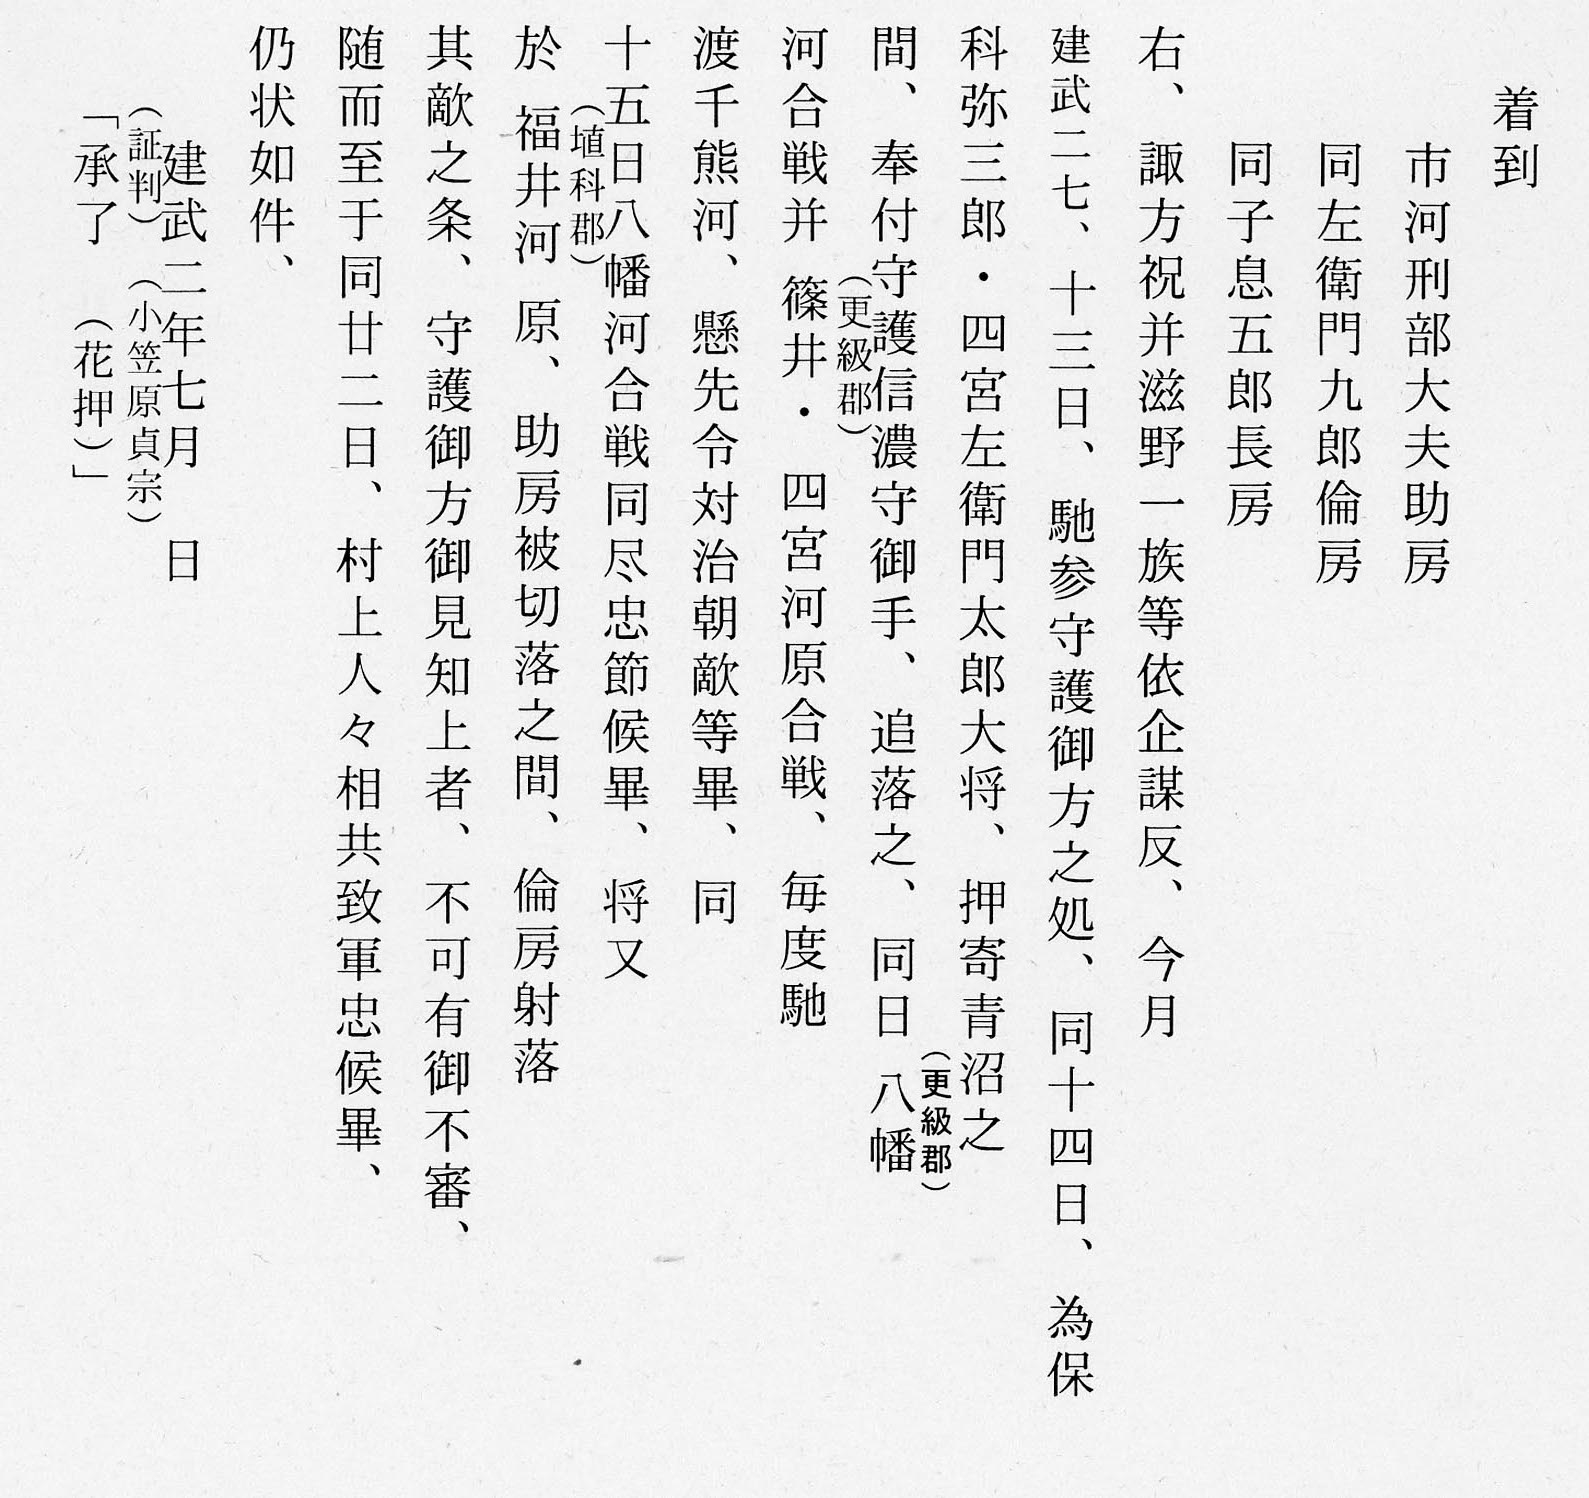 着到
市河刑部大夫助房
同左衛門九郎倫房
同子息五郎長房
右、諏方祝并滋野一族等依企謀反、今月
建武二七、十三日、馳参守護御方之処、同十四日、為保
科弥三郎・四宮左衛門太郎大将、押寄青沼之
（更級郡）
間、奉付守護信濃守御手、追落之、同日八幡
（更級郡）
河合戦并篠井・四宮河原合戦、毎度馳
渡千熊河、懸先令対治朝敵等畢、同
十五日八幡河合戦同尽忠節候畢、将又
（埴科郡）
於福井河原、助房被切落之間、倫房射落
其敵之条、守護御方御見知上者、不可有御不審、
随而至于同廿二日、村上人々相共致軍忠候畢、
仍状如件、
建武二年七月　日
（証判）（小笠原貞宗）
「承了（花押）」